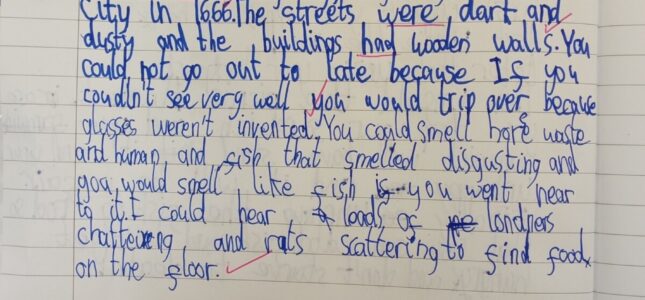 City in 1666. The streets were dark and
dusty and the buildings had wooden walls. You
could not go out to late because If you
coudln't see very well you would trip over because
glasses weren't invented. You could smell horse waste
and human and fish that smelled disgusting and
you would smell like fish if you went near
to it. I could hear loads of londners
chattering and rats scattering to find food
on the floor.